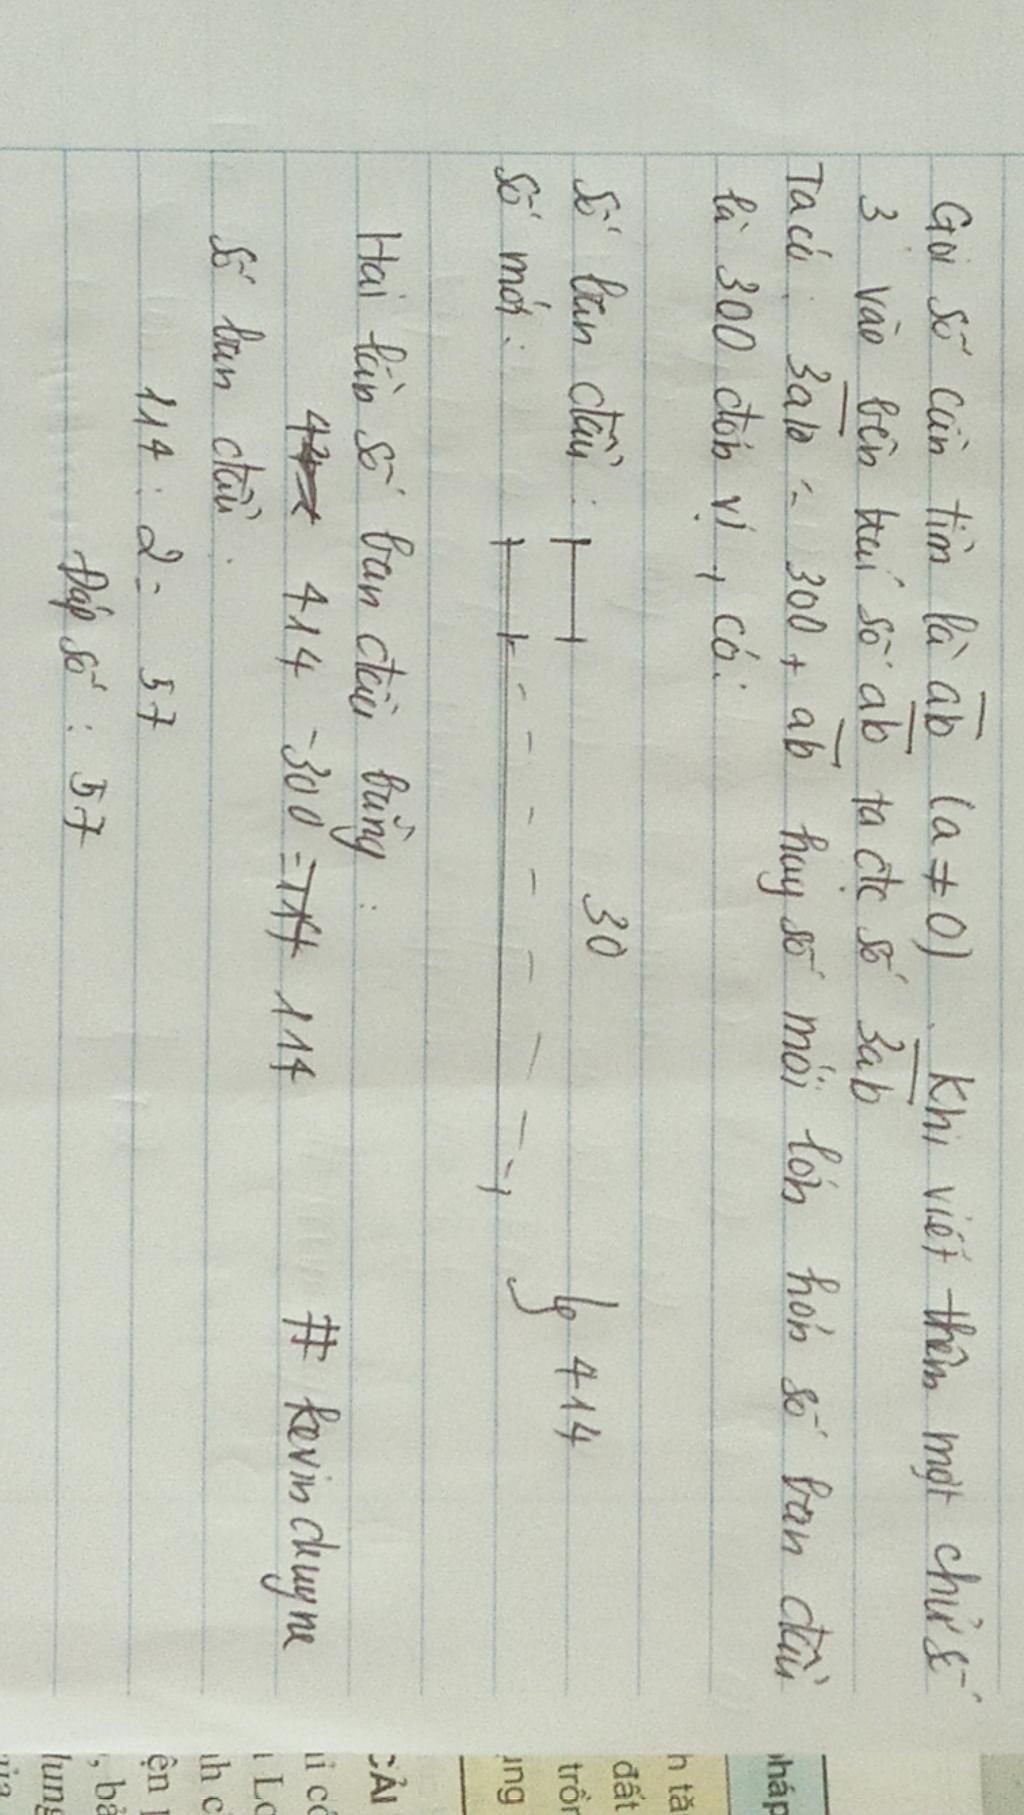 Gọi số cần tìm là ab (a ≠ 0). Khi viết thêm một chữ số
3 vào bên trái số ab ta đc số 3ab
Ta có: 3ab = 300 + ab hay số mới lớn hơn số ban đầu
là 300 đơn vị, có:
30
Số ban đầu:
414
Số mới:
Hai lần số ban đầu bằng:
414 - 300 = 114
# kevin chuyne
Số ban đầu:
114 : 2 = 57
Đáp số: 57
pháp
h tă
đất
trồn
ụng
CẢI
ại c
Lo
nh c
ện
, bả
lung